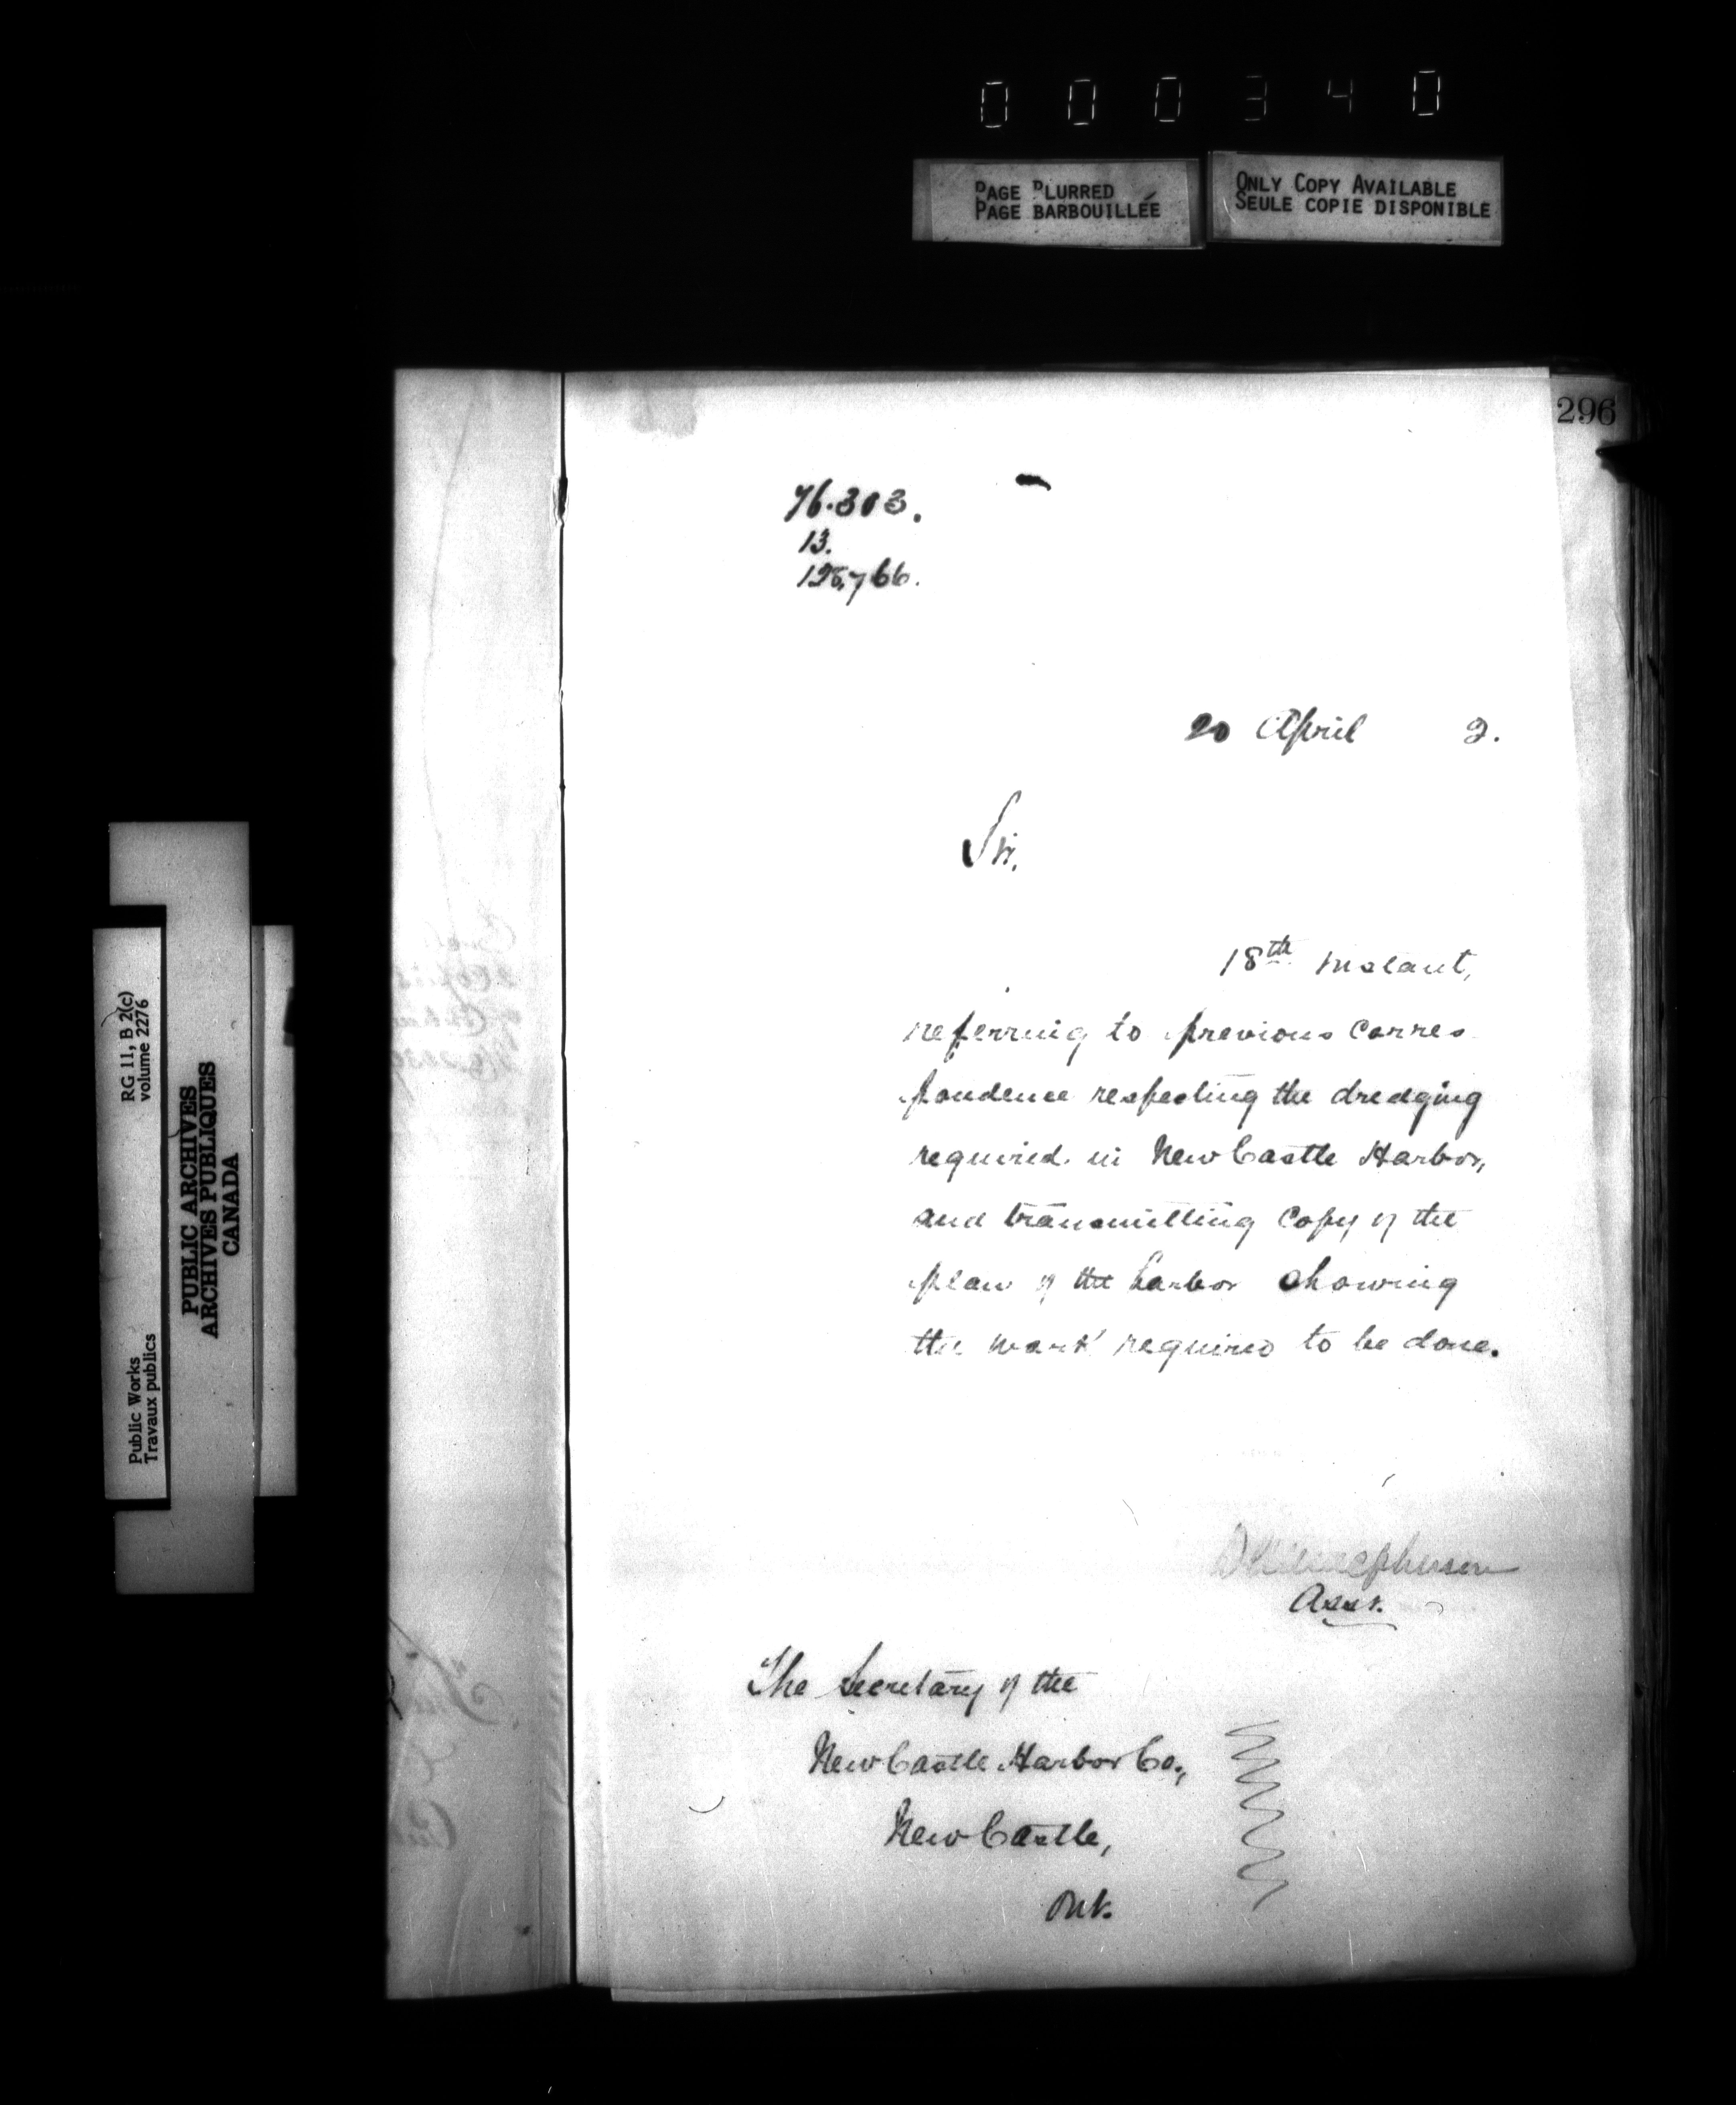 000340
PAGE BLURRED
PAGE BARBOUILLÉE
ONLY COPY AVAILABLE
SEULE COPIE DISPONIBLE
296
76.303.
13.
128,766.
20 April 2.
Sir,
18th instant,
referring to previous corres
pondence respecting the dredging
required in NewCastle Harbor,
and transmitting copy of the
plan of the harbor showing
the work required to be done.
Asst.
The Secretary of the
NewCastle Harbor Co.,
NewCastle,
Ont.
RG 11, B 2(c)
volume 2276
PUBLIC ARCHIVES
ARCHIVES PUBLIQUES
CANADA
Public Works
Travaux publics